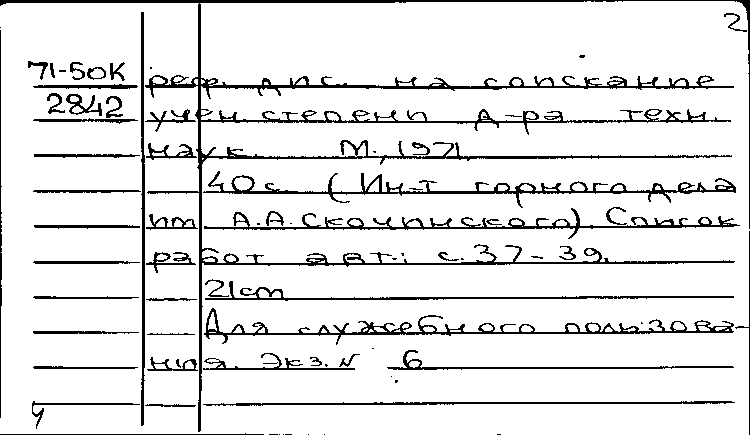 2
71-50К реф. дис. на соискание
2842 учен. степени д-ра техн.
наук. М., 1971.
40 с. (Ин-т горного дела
им. А.А. Скочинского). Список
работ авт.: с. 37-39.
21 cm
Для служебного пользова-
ния. Экз. № 6